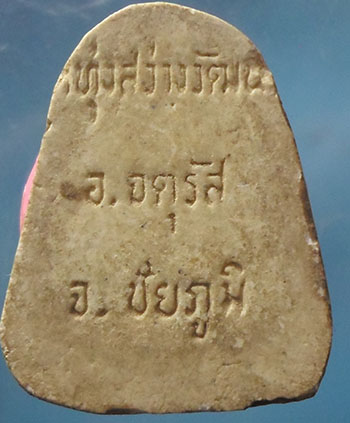 ทุ่งสว่างวัฒนา
อ. จตุรัส
จ. ชัยภูมิ